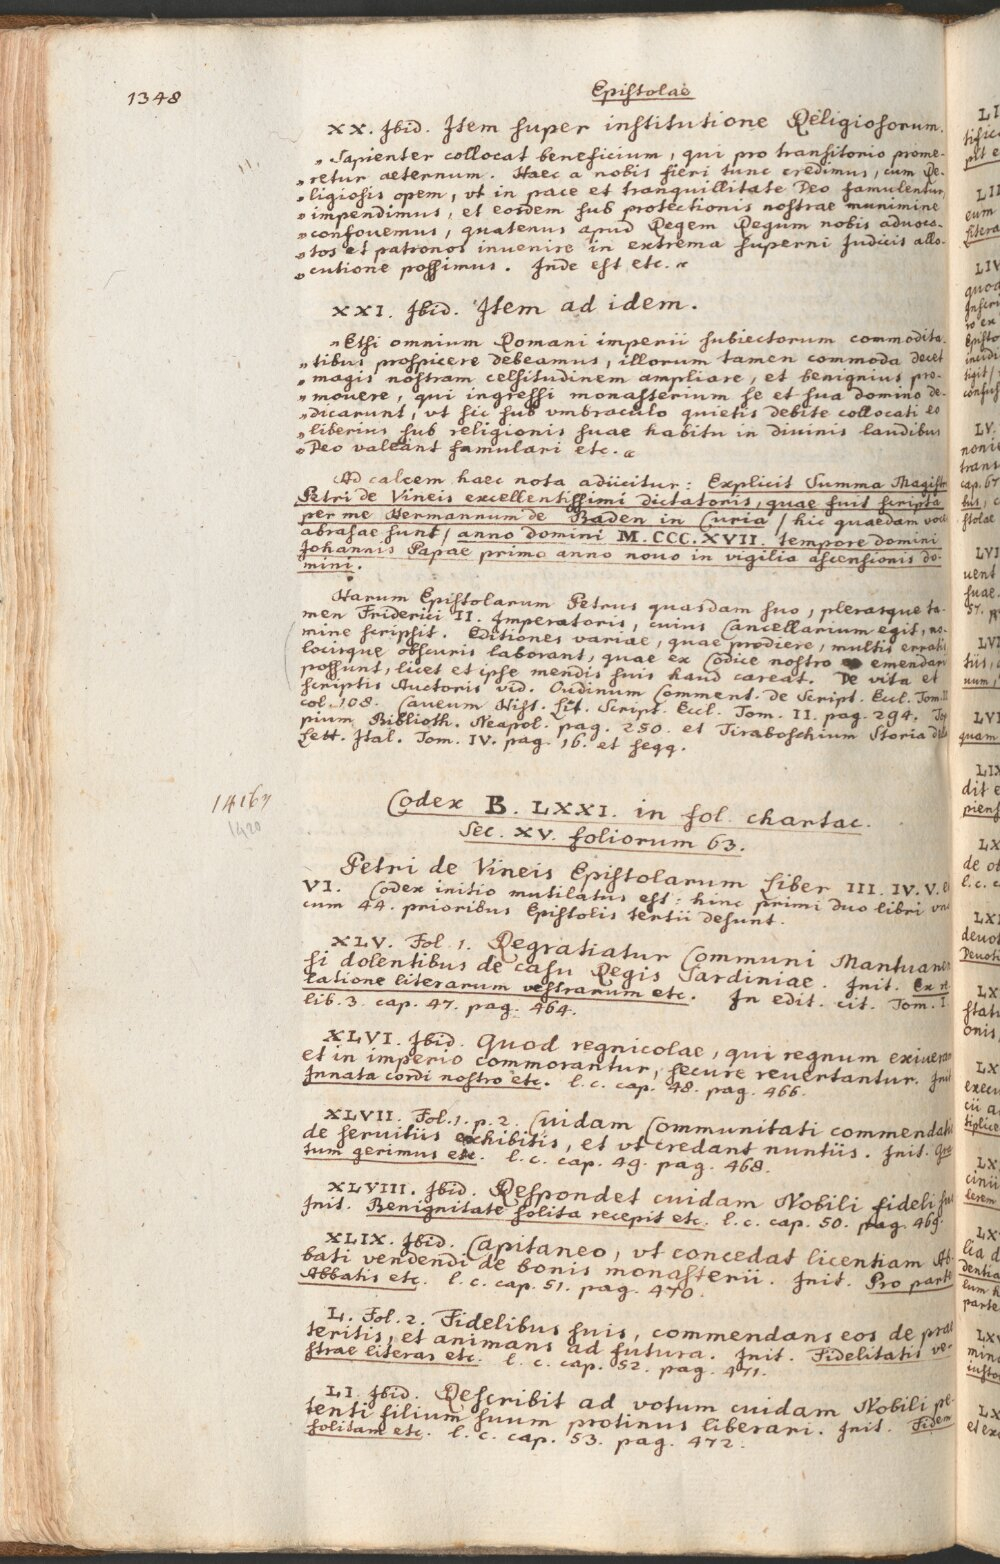 1348
Epistolae
XX. Ibid. Item super institutione Religiosorum.
„ Sapienter collocat beneficium, qui pro transitorio prome-
„ retur aeternum. Haec a nobis fieri tunc credimus, cum Re-
„ ligiosis opem, vt in pace et tranquillitate Deo famulentur,
„ impendimus, et eosdem sub protectionis nostrae munimine
„ confouemus, quatenus apud Regem Regum nobis aduoca-
„ tos et patronos inuenire in extrema superni Iudicis allo-
„ cutione possimus. Inde est etc. “
XXI. Ibid. Item ad idem.
„ Etsi omnium Romani imperii subiectorum commodita-
„ tibus prospicere debeamus, illorum tamen commoda decet
„ magis nostram celsitudinem ampliare, et benignius pro-
„ mouere, qui ingressi monasterium se et sua domino de-
„ dicarunt, vt sic sub vmbraculo quietis debite collocati eo
„ liberius sub religionis suae habitu in diuinis laudibus
„ Deo valeant famulari etc. “
Ad calcem haec nota adiicitur: Explicit Summa Magistri
Petri de Vineis excellentissimi dictatoris, quae fuit scripta
per me Hermannum de Baden in Curia / hic quaedam voc
abrasae sunt / anno domini M.CCC.XVII. tempore domini
Johannis Papae primo anno nouo in vigilia ascensionis do-
mini.
Harum Epistolarum Petrus quasdam suo, plerasque ta-
men Friderici II. Imperatoris, cuius Cancellarium egit, no-
mine scripsit. Editiones variae, quae prodiere, multis erratis
locisque obscuris laborant, quae ex Codice nostro emendari
possunt, licet et ipse mendis suis haud careat. De vita et
scriptis Auctoris vid. Oudinum Comment. de Script. Eccl. Tom. II
col. 108. Caueum Hist. Lit. Script. Eccl. Tom. II. pag. 294. Top
pium Biblioth. Neapol. pag. 250. et Tiraboschium Storia della
Lett. Ital. Tom. IV. pag. 16. et seqq.
14167
1420
Codex B. LXXI. in fol. chartac.
Sec. XV. foliorum 63.
Petri de Vineis Epistolarum Liber III. IV. V. et
VI. Codex initio mutilatus est: hinc primi duo libri vna
cum 44. prioribus Epistolis tertii desunt.
XLV. Fol. 1. Regratiatur Communi Mantuanen
si dolentibus de casu Regis Sardiniae. Init. Ex re
latione literarum vestrarum etc. In edit. cit. Tom. I.
lib. 3. cap. 47. pag. 464.
XLVI. Ibid. Quod regnicolae, qui regnum exiueran
et in imperio commorantur, secure reuertantur. Init
Innata cordi nostro etc. l. c. cap. 48. pag. 466.
XLVII. Fol. 1. p. 2. Cuidam Communitati commendatis
de seruitiis exhibitis, et vt credant nuntiis. Init. Gra
tum gerimus etc. l. c. cap. 49. pag. 468.
XLVIII. Ibid. Respondet cuidam Nobili fideli suo
Init. Benignitate solita recepit etc. l. c. cap. 50. pag. 469.
XLIX. Ibid. Capitaneo, vt concedat licentiam Ab-
bati vendendi de bonis monasterii. Init. Pro parte
Abbatis etc. l. c. cap. 51. pag. 470.
L. Fol. 2. Fidelibus suis, commendans eos de prae
teritis, et animans ad futura. Init. Fidelitatis ve-
strae literas etc. l. c. cap. 52. pag. 471.
LI. Ibid. Rescribit ad votum cuidam Nobili pe-
tenti filium suum protinus liberari. Init. Fidem
solitam etc. l. c. cap. 53. pag. 472.